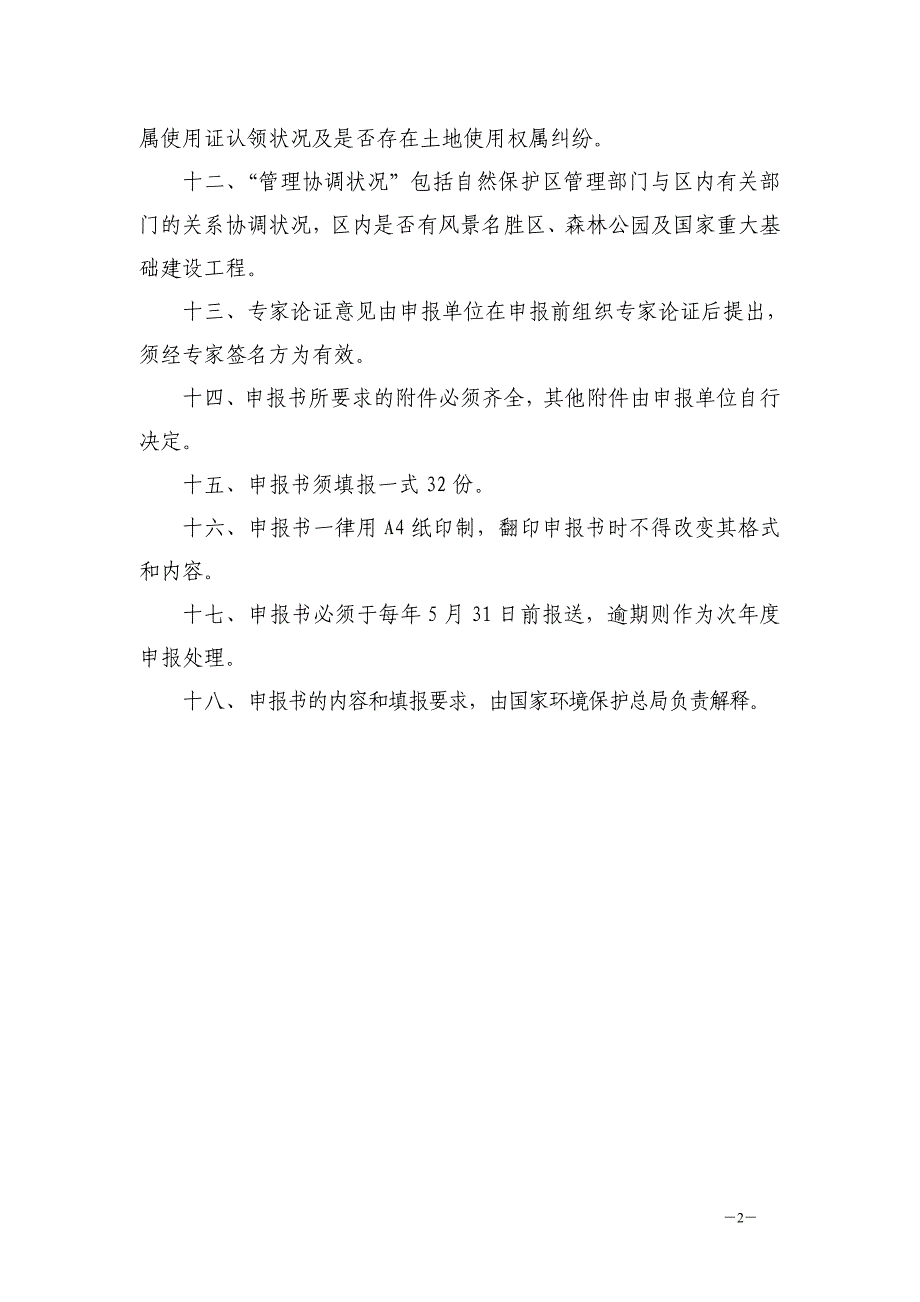 属使用证认领状况及是否存在土地使用权属纠纷。
十二、“管理协调状况”包括自然保护区管理部门与区内有关部
门的关系协调状况，区内是否有风景名胜区、森林公园及国家重大基
础建设工程。
十三、专家论证意见由申报单位在申报前组织专家论证后提出，
须经专家签名方为有效。
十四、申报书所要求的附件必须齐全，其他附件由申报单位自行
决定。
十五、申报书须填报一式 32 份。
十六、申报书一律用 A4 纸印制，翻印申报书时不得改变其格式
和内容。
十七、申报书必须于每年 5 月 31 日前报送，逾期则作为次年度
申报处理。
十八、申报书的内容和填报要求，由国家环境保护总局负责解释。
－2－